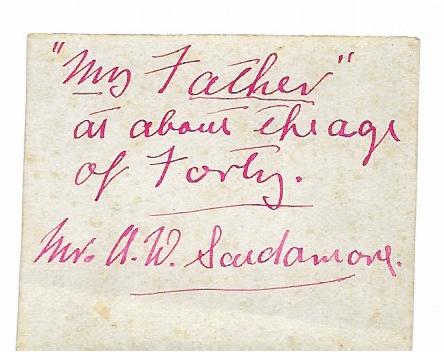 "My Father"
at about the age
of Forty.
Mr. A.W. Scudamore.